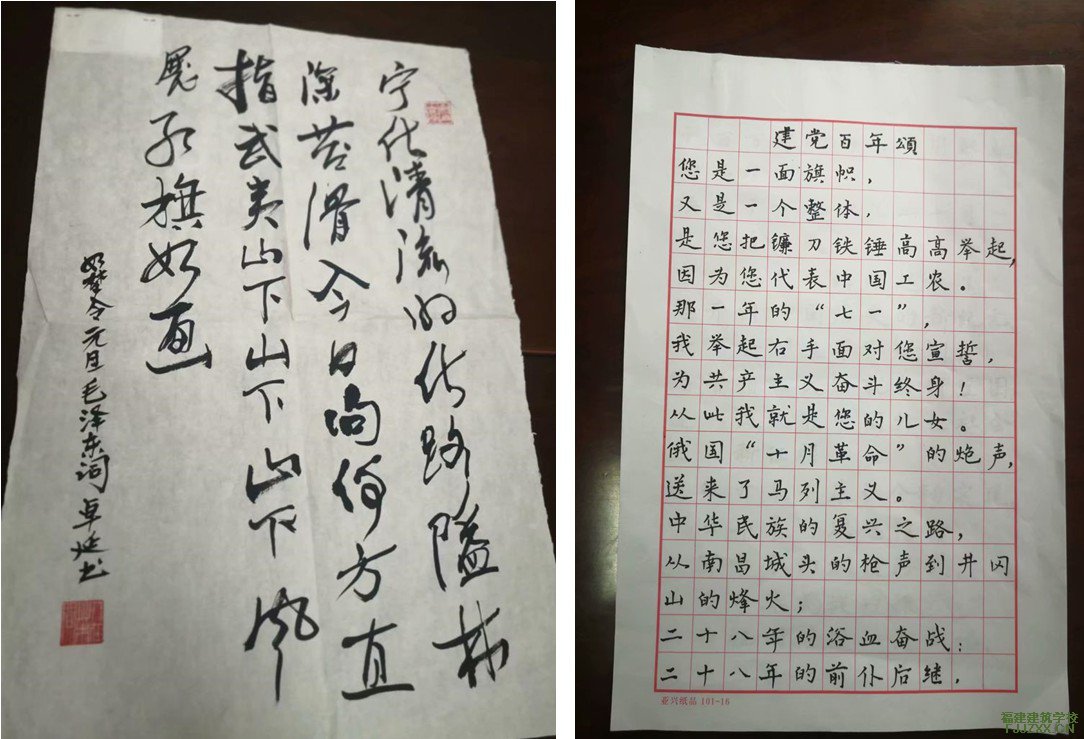 宁化清流归化路隘林
深苔滑今日向何方直
指武夷山下山下山下风
展红旗如画
如梦令元旦毛泽东词 卓延书
建党百年頌
您是一面旗帜，
又是一个整体，
是您把镰刀铁锤高高举起，
因为您代表中国工农。
那一年的“七一”，
我举起右手面对您宣誓，
为共产主义奋斗终身！
从此我就是您的儿女。
俄国“十月革命”的炮声，
送来了马列主义。
中华民族的复兴之路，
从南昌城头的枪声到井冈
山的烽火；
二十八年的浴血奋战；
二十八年的前仆后继，
亚兴纸品 101-16
福建建筑学校
FJJZXX.CN